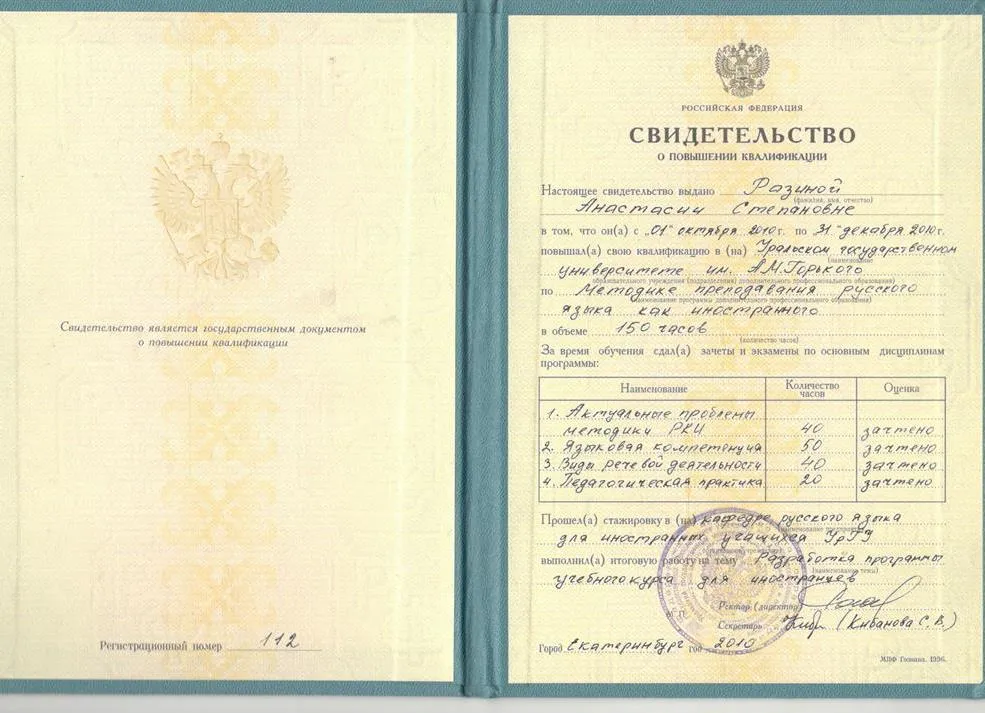 Свидетельство является государственным документом
о повышении квалификации
Регистрационный номер 112
РОССИЙСКАЯ ФЕДЕРАЦИЯ
СВИДЕТЕЛЬСТВО
О ПОВЫШЕНИИ КВАЛИФИКАЦИИ
Настоящее свидетельство выдано Разиной
(фамилия, имя, отчество)
Анастасии Степановне
в том, что он(а) с „01“ октября 2010 г. по 31 "декабря 2010 г.
повышал(а) свою квалификацию в (на) Уральском государственном
(наименование
университете им. А.М.Горького
образовательного учреждения (подразделения) дополнительного профессионального образования)
по Методике преподавания русского
(наименование программы дополнительного профессионального образования)
языка как иностранного
в объеме 150 часов
(количество часов)
За время обучения сдал(а) зачеты и экзамены по основным дисциплинам
программы:
Наименование Количество часов Оценка
1. Актуальные проблемы
методики РКИ 40 зачтено
2. Языковая компетенция 50 зачтено
3. Виды речевой деятельности 40 зачтено
4. Педагогическая практика 20 зачтено
Прошел(а) стажировку в (на) кафедре русского языка
для иностранных учащихся УрГУ
выполнил(а) итоговую работу на тему Разработка программы
(наименование темы)
учебного курса для иностранцев
Ректор (директор)
М. П.
Секретарь (Кибанова С. В.)
Город Екатеринбург год 2010
МПФ Гознака. 1996.